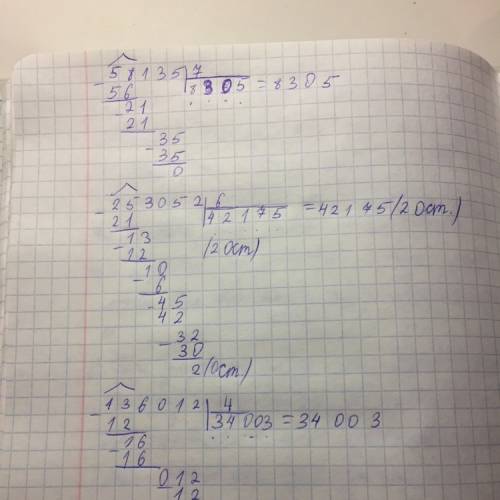 58135 7
56 8305 = 8305
21
21
35
35
0
253052 6
21 42175 = 42175 (2 Ост.)
13 (2 Ост)
12
10
6
45
42
32
30
2 (Ост)
136012 4
12 34003 = 34 003
16
16
012
12